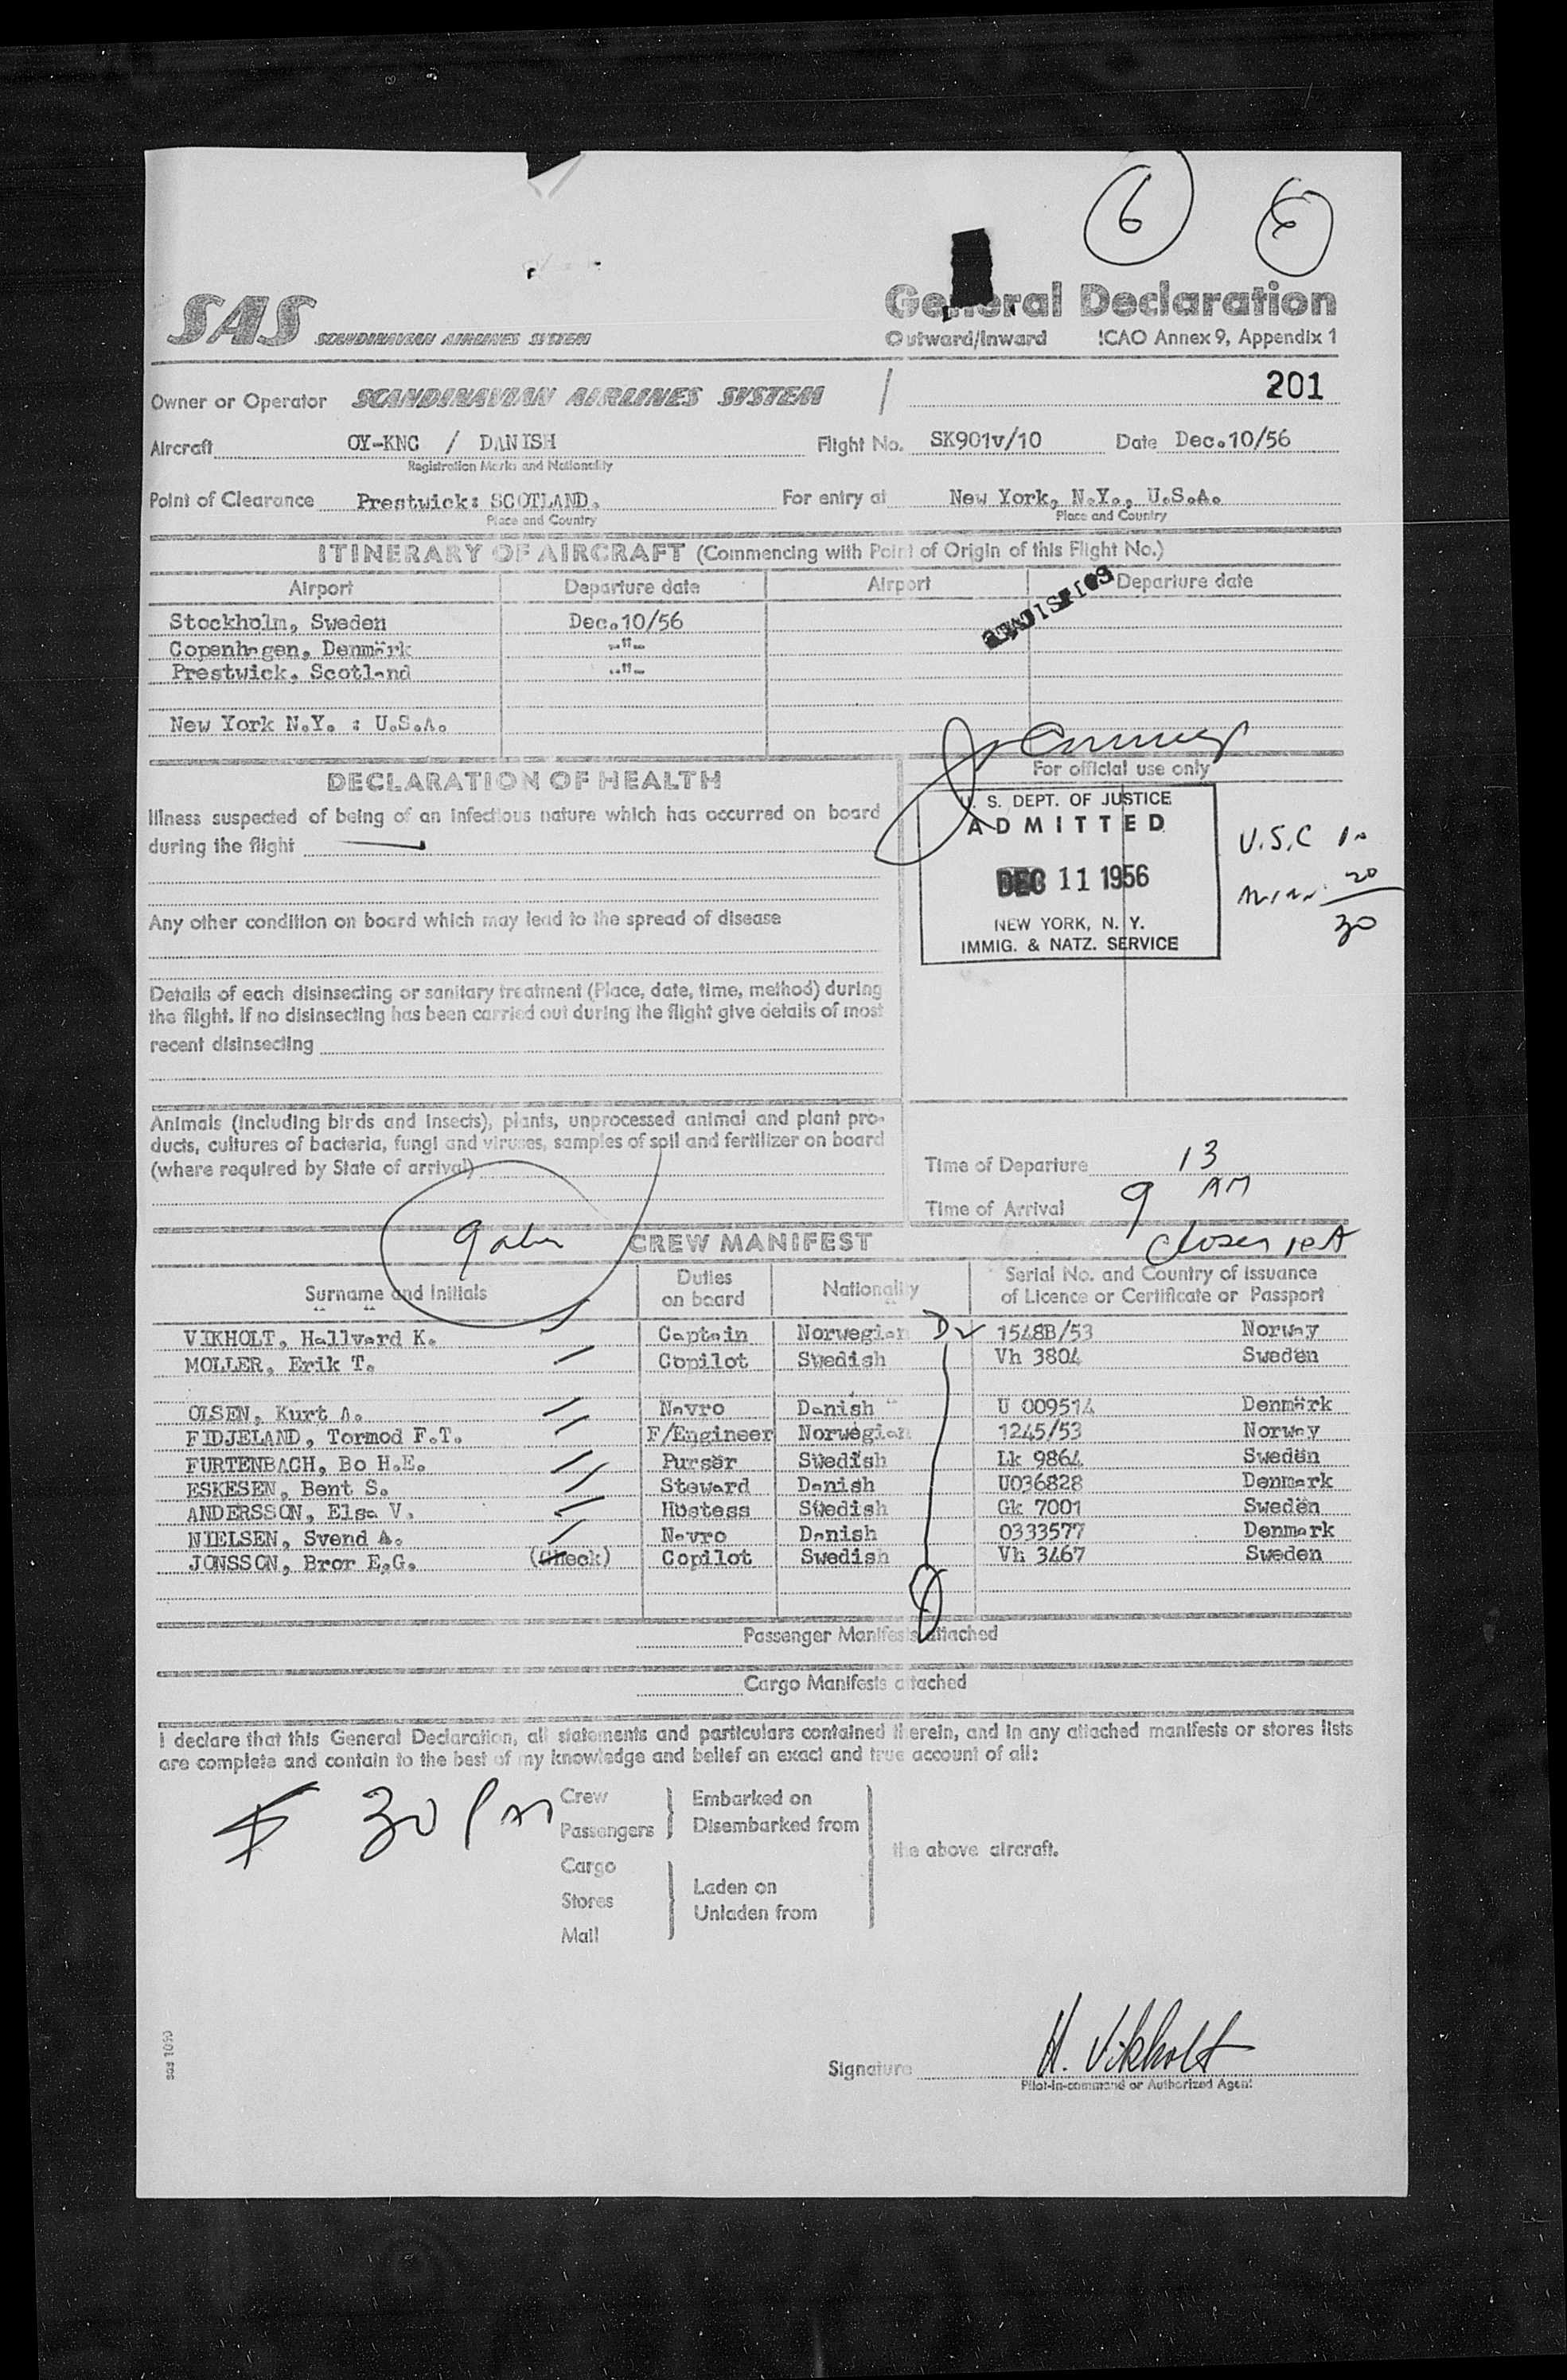 6
SAS SCANDINAVIAN AIRLINES SYSTEM
General Declaration
Outward/Inward ICAO Annex 9, Appendix 1
Owner or Operator SCANDINAVIAN AIRLINES SYSTEM / 201
Aircraft OY-KNC / DANISH Flight No. SK901v/10 Date Dec.10/56
Registration Marks and Nationality
Point of Clearance Prestwick: SCOTLAND. For entry at New York, N.Y., U.S.A.
Place and Country Place and Country
ITINERARY OF AIRCRAFT (Commencing with Point of Origin of this Flight No.)
Airport Departure date Airport Departure date
Stockholm, Sweden Dec.10/56
Copenhagen, Denmark -"-
Prestwick, Scotland -"-
New York N.Y. : U.S.A.
DECLARATION OF HEALTH
For official use only
Illness suspected of being of an infectious nature which has occurred on board
during the flight
U. S. DEPT. OF JUSTICE
ADMITTED
DEC 11 1956
NEW YORK, N. Y.
IMMIG. & NATZ. SERVICE
U.S.C 10
20
30
Any other condition on board which may lead to the spread of disease
Details of each disinsecting or sanitary treatment (Place, date, time, method) during
the flight. If no disinsecting has been carried out during the flight give details of most
recent disinsecting
Animals (including birds and insects), plants, unprocessed animal and plant pro-
ducts, cultures of bacteria, fungi and viruses, samples of soil and fertilizer on board
(where required by State of arrival)
Time of Departure 13
Time of Arrival 9 AM
CREW MANIFEST
Surname and Initials Duties on board Nationality Serial No. and Country of Issuance
of Licence or Certificate or Passport
VIKHOLT, Hallvard K. Captain Norwegian 1548B/53 Norway
MOLLER, Erik T. Copilot Swedish Vh 3804 Sweden
OLSEN, Kurt A. Navro Danish U 009514 Denmark
FIDJELAND, Tormod F.T. F/Engineer Norwegian 1245/53 Norway
FURTENBACH, Bo H.E. Purser Swedish Lk 9864 Sweden
ESKESEN, Bent S. Steward Danish U036828 Denmark
ANDERSSON, Elsa V. Hostess Swedish Gk 7001 Sweden
NIELSEN, Svend A. Navro Danish 0333577 Denmark
JONSSON, Bror E.G. (Check) Copilot Swedish Vh 3467 Sweden
Passenger Manifests attached
Cargo Manifests attached
I declare that this General Declaration, all statements and particulars contained therein, and in any attached manifests or stores lists
are complete and contain to the best of my knowledge and belief an exact and true account of all:
30
Crew Embarked on
Passengers Disembarked from
the above aircraft.
Cargo
Stores Laden on
Unladen from
Mail
sas 1090
Signature H. Vikholt
Pilot-in-command or Authorized Agent